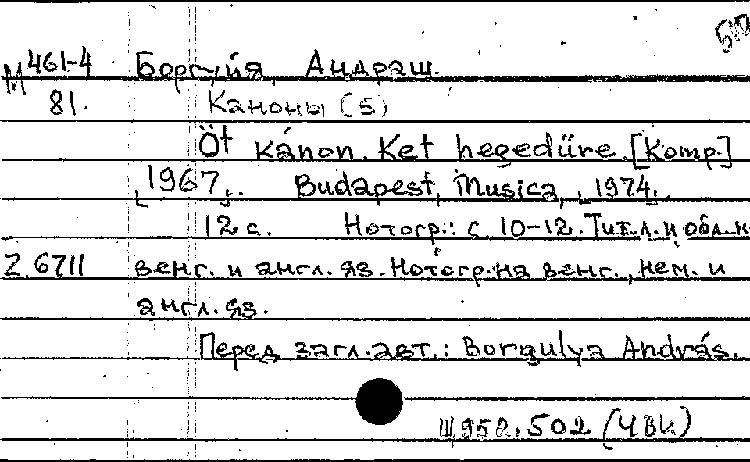 М 461-4 Боргуйя, Андраш.
81. Каноны (5)
Öt kánon. Ket hegedüre. [Komp.]
1967. Budapest, Musica, 1974.
12 с. Нотогр.: с. 10-12. Тит.л. и обл. н
Z. 6711 венг. и англ. яз. Нотогр. на венг., нем. и
англ. яз.
Перед загл. авт.: Borgulya András.
952.502 (ЧВИ)